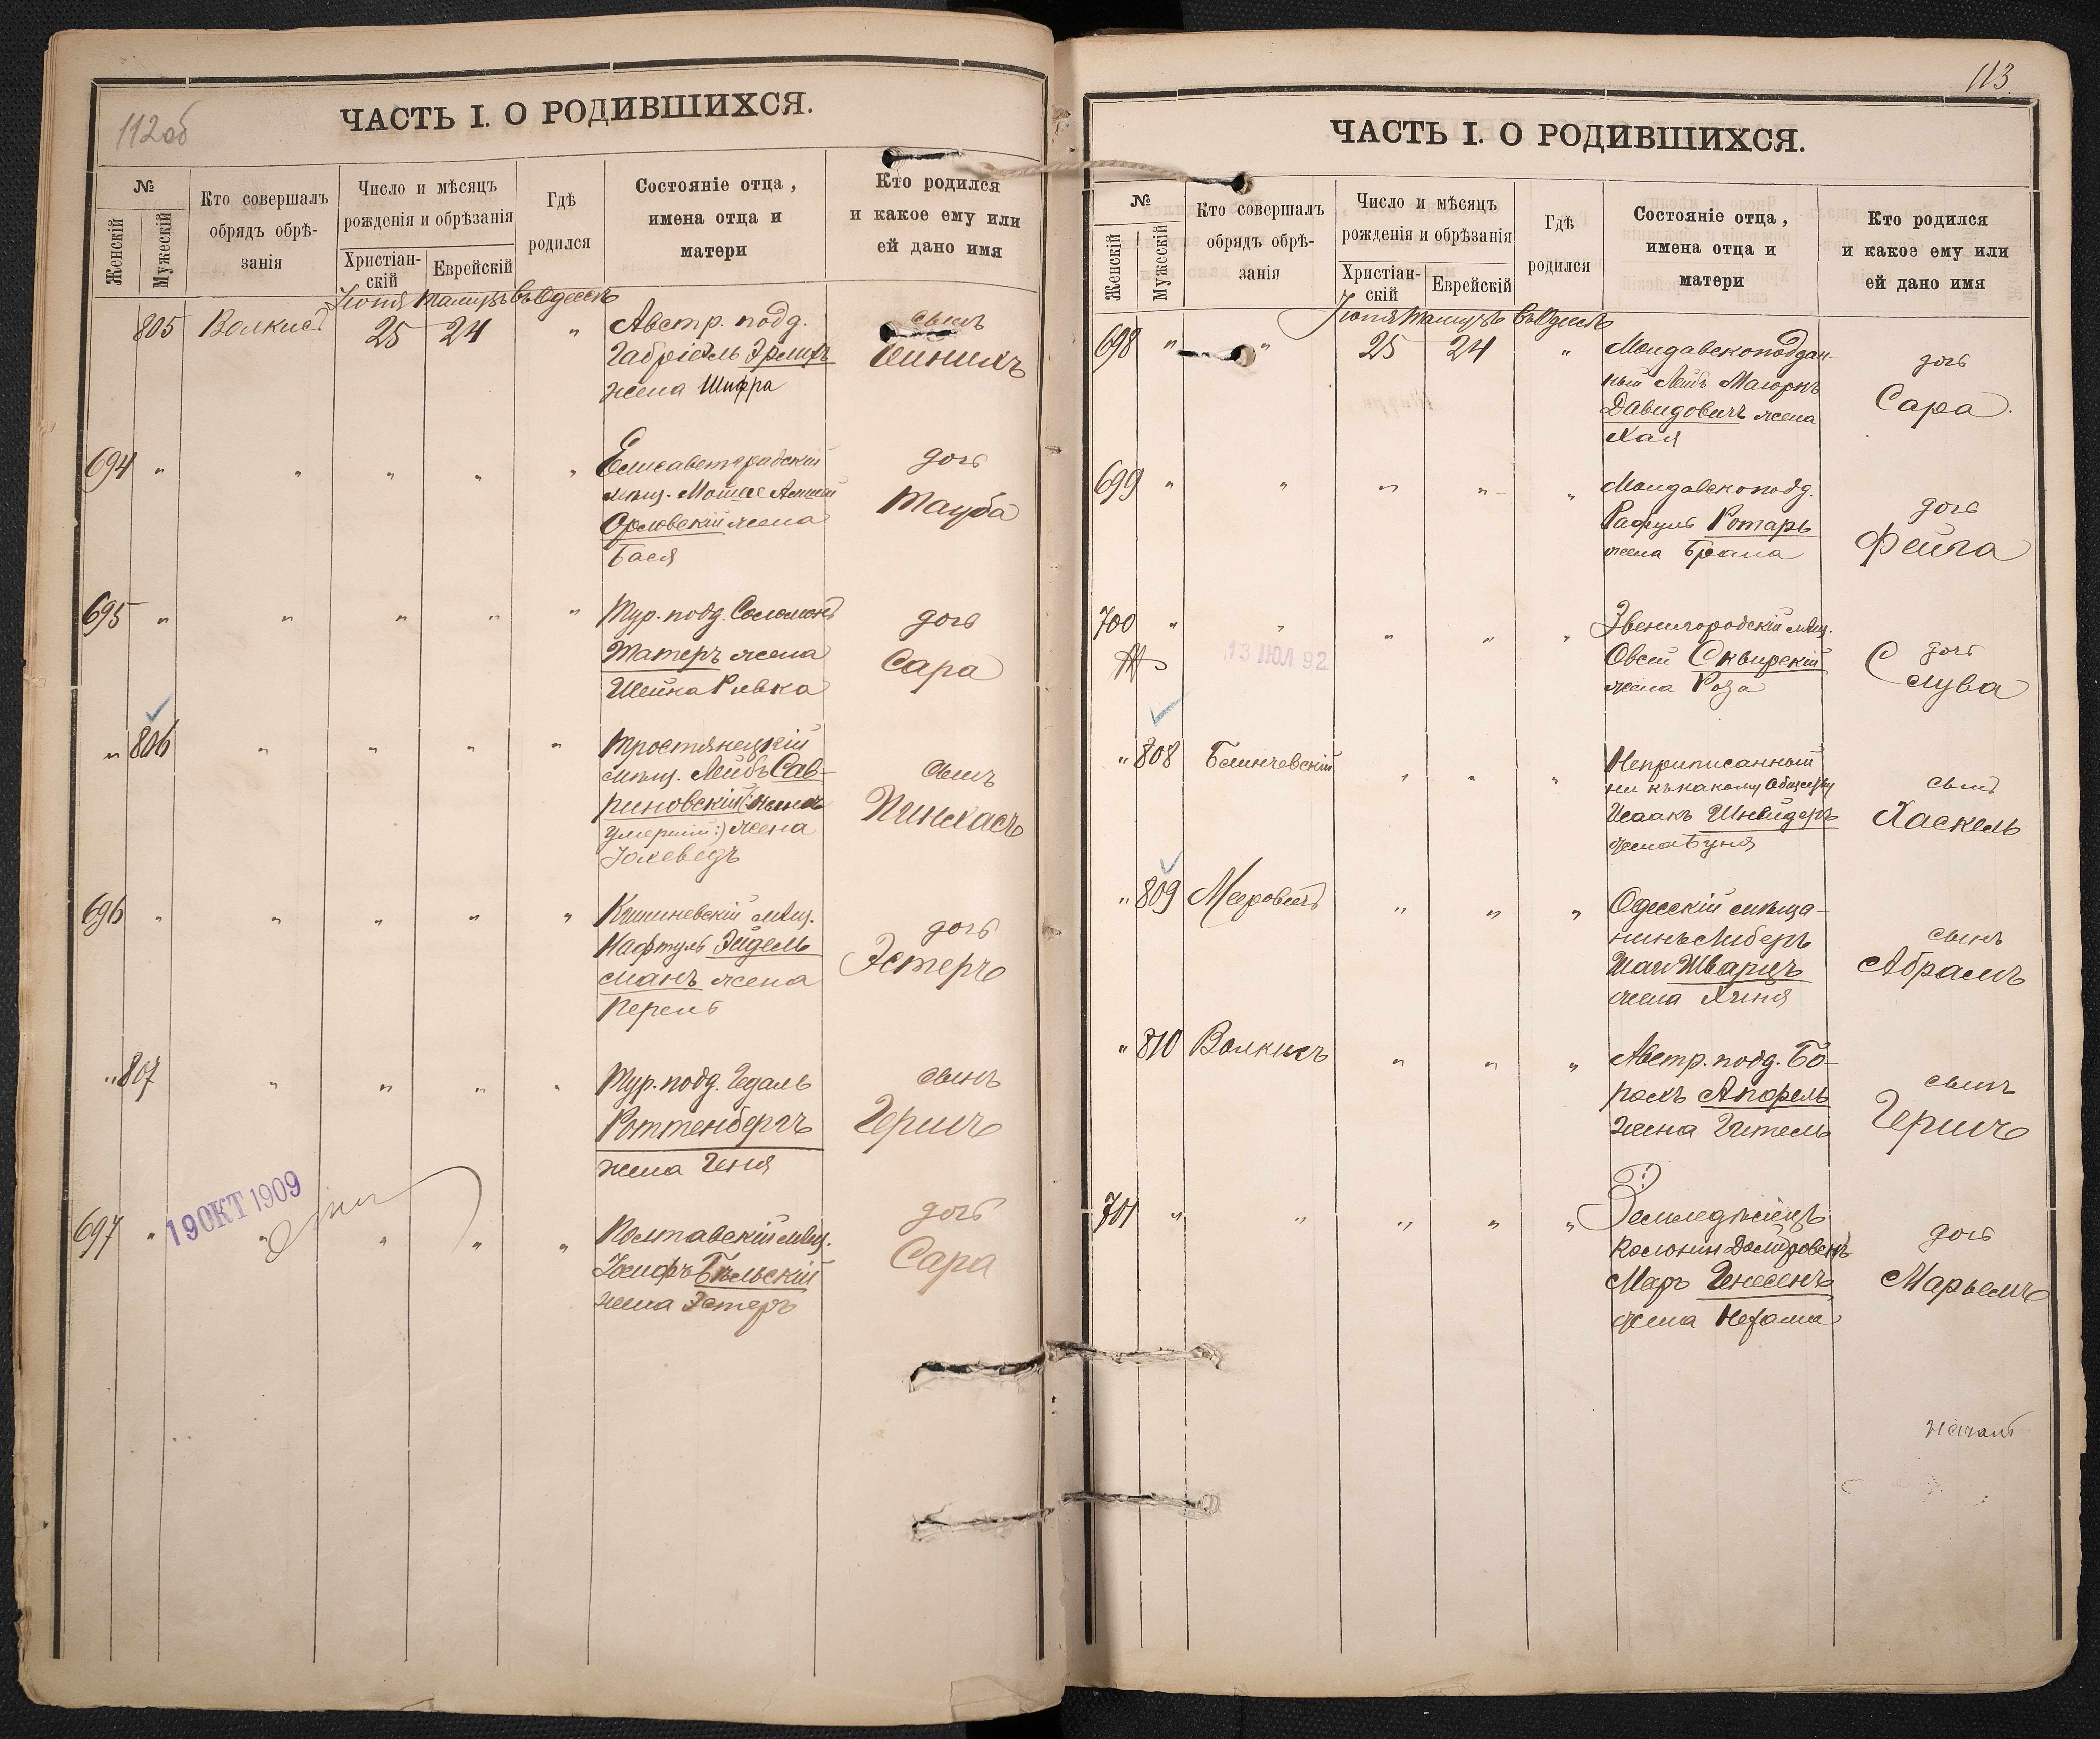 112об
ЧАСТЬ I. О РОДИВШИХСЯ.
№
Женскій
Мужескій
Кто совершалъ
обрядъ обрѣ-
занія
Число и мѣсяцъ
рожденія и обрѣзанія
Христіан-
скій
Еврейскій
Гдѣ
родился
Состояніе отца,
имена отца и
матери
Кто родился
и какое ему или
ей дано имя
Іюня Тамузъ Въ Одессѣ
805 Волкисъ 25 24 " Австр. подд. сынъ
Габріель Эрлихъ
жена Шифра
694 " " " " " Елисаветградскій дочь
мѣщ. Мошее Тауба
Орловскій жена
Бася
695 " " " " " Тур. подд. Соломонъ дочь
Татеръ жена Сара
Шейна Ривка
" 806 " " " " Тростянецкій
мѣщ. Лейбъ Сав- сынъ
риновскій (:нынѣ Пинхасъ
умершій:) жена
Іохеведъ
696 " " " " " Кишиневскій мѣщ. дочь
Нафтуль Эйдель Эстеръ
манъ жена
Перель
" 807 " " " " Тур. подд. Гедаль сынъ
Роттенбергъ Гершъ
жена Геня
19 ОКТ 1909
697 " " " " " Полтавскій мѣщ. дочь
Іосифъ Бѣльскій Сара
жена Эстеръ
113
ЧАСТЬ I. О РОДИВШИХСЯ.
№
Женскій
Мужескій
Кто совершалъ
обрядъ обрѣ-
занія
Число и мѣсяцъ
рожденія и обрѣзанія
Христіан-
скій
Еврейскій
Гдѣ
родился
Состояніе отца,
имена отца и
матери
Кто родился
и какое ему или
ей дано имя
Іюня Тамузъ Въ Одессѣ
698 " " 25 24 " Молдавскоподдан- дочь
ный Лейбъ Маіоркъ Сара.
Давидовичъ жена
Хая
699 " " " " " Молдавскоподд. дочь
Рафуль Ротарь Фейга
жена Брана
700 " " " " " Звенигородскій мѣщ.
13 ІЮЛ 92 Овсій Сквирскій дочь
жена Роза Слува
" 808 Блинчевскій " " " Неприписанный
ни къ какому Обществу сынъ
Исаакъ Шнейдеръ Хаскель
жена Буня
" 809 Мееровичъ " " " Одесскій мѣща-
нинъ Либеръ сынъ
Шая Шварцъ Абрамъ
жена Хиня
" 810 Волкисъ " " " Австр. подд. Бо-
рохъ Апфель сынъ
жена Гитель Гершъ
701 " " " " " Земледѣлецъ
колоніи дочь
Меръ Генесенъ Марьемъ
жена Нехама